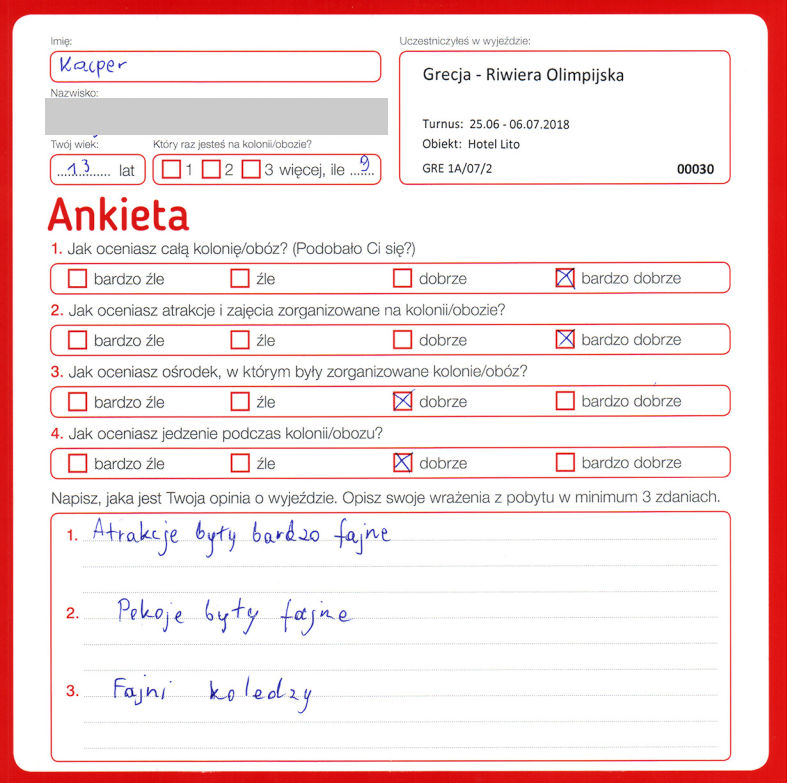 Imię:
Kacper
Uczestniczyłeś w wyjeździe:
Grecja - Riwiera Olimpijska
Turnus: 25.06 - 06.07.2018
Obiekt: Hotel Lito
GRE 1A/07/2 00030
Nazwisko:
Twój wiek:
13 lat
Który raz jesteś na kolonii/obozie?
1 2 3 więcej, ile 9
Ankieta
1. Jak oceniasz całą kolonię/obóz? (Podobało Ci się?)
bardzo źle źle dobrze bardzo dobrze
2. Jak oceniasz atrakcje i zajęcia zorganizowane na kolonii/obozie?
bardzo źle źle dobrze bardzo dobrze
3. Jak oceniasz ośrodek, w którym były zorganizowane kolonie/obóz?
bardzo źle źle dobrze bardzo dobrze
4. Jak oceniasz jedzenie podczas kolonii/obozu?
bardzo źle źle dobrze bardzo dobrze
Napisz, jaka jest Twoja opinia o wyjeździe. Opisz swoje wrażenia z pobytu w minimum 3 zdaniach.
1. Atrakcje były bardzo fajne
2. Pokoje były fajne
3. Fajni koledzy